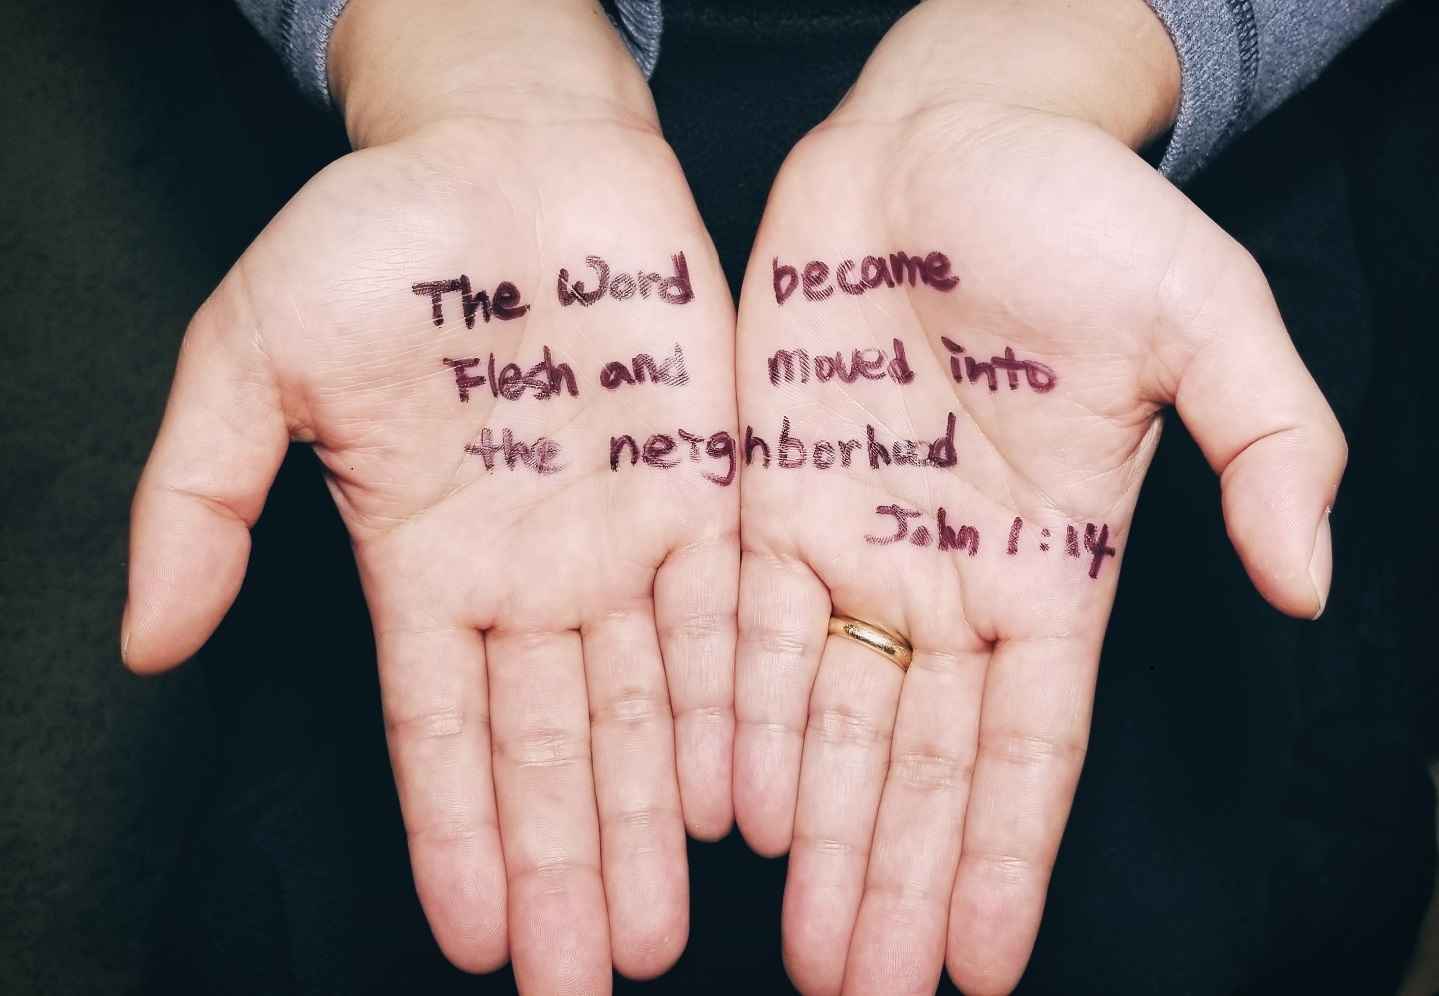 The Word became
Flesh and moved into
the neighborhood
John 1:14